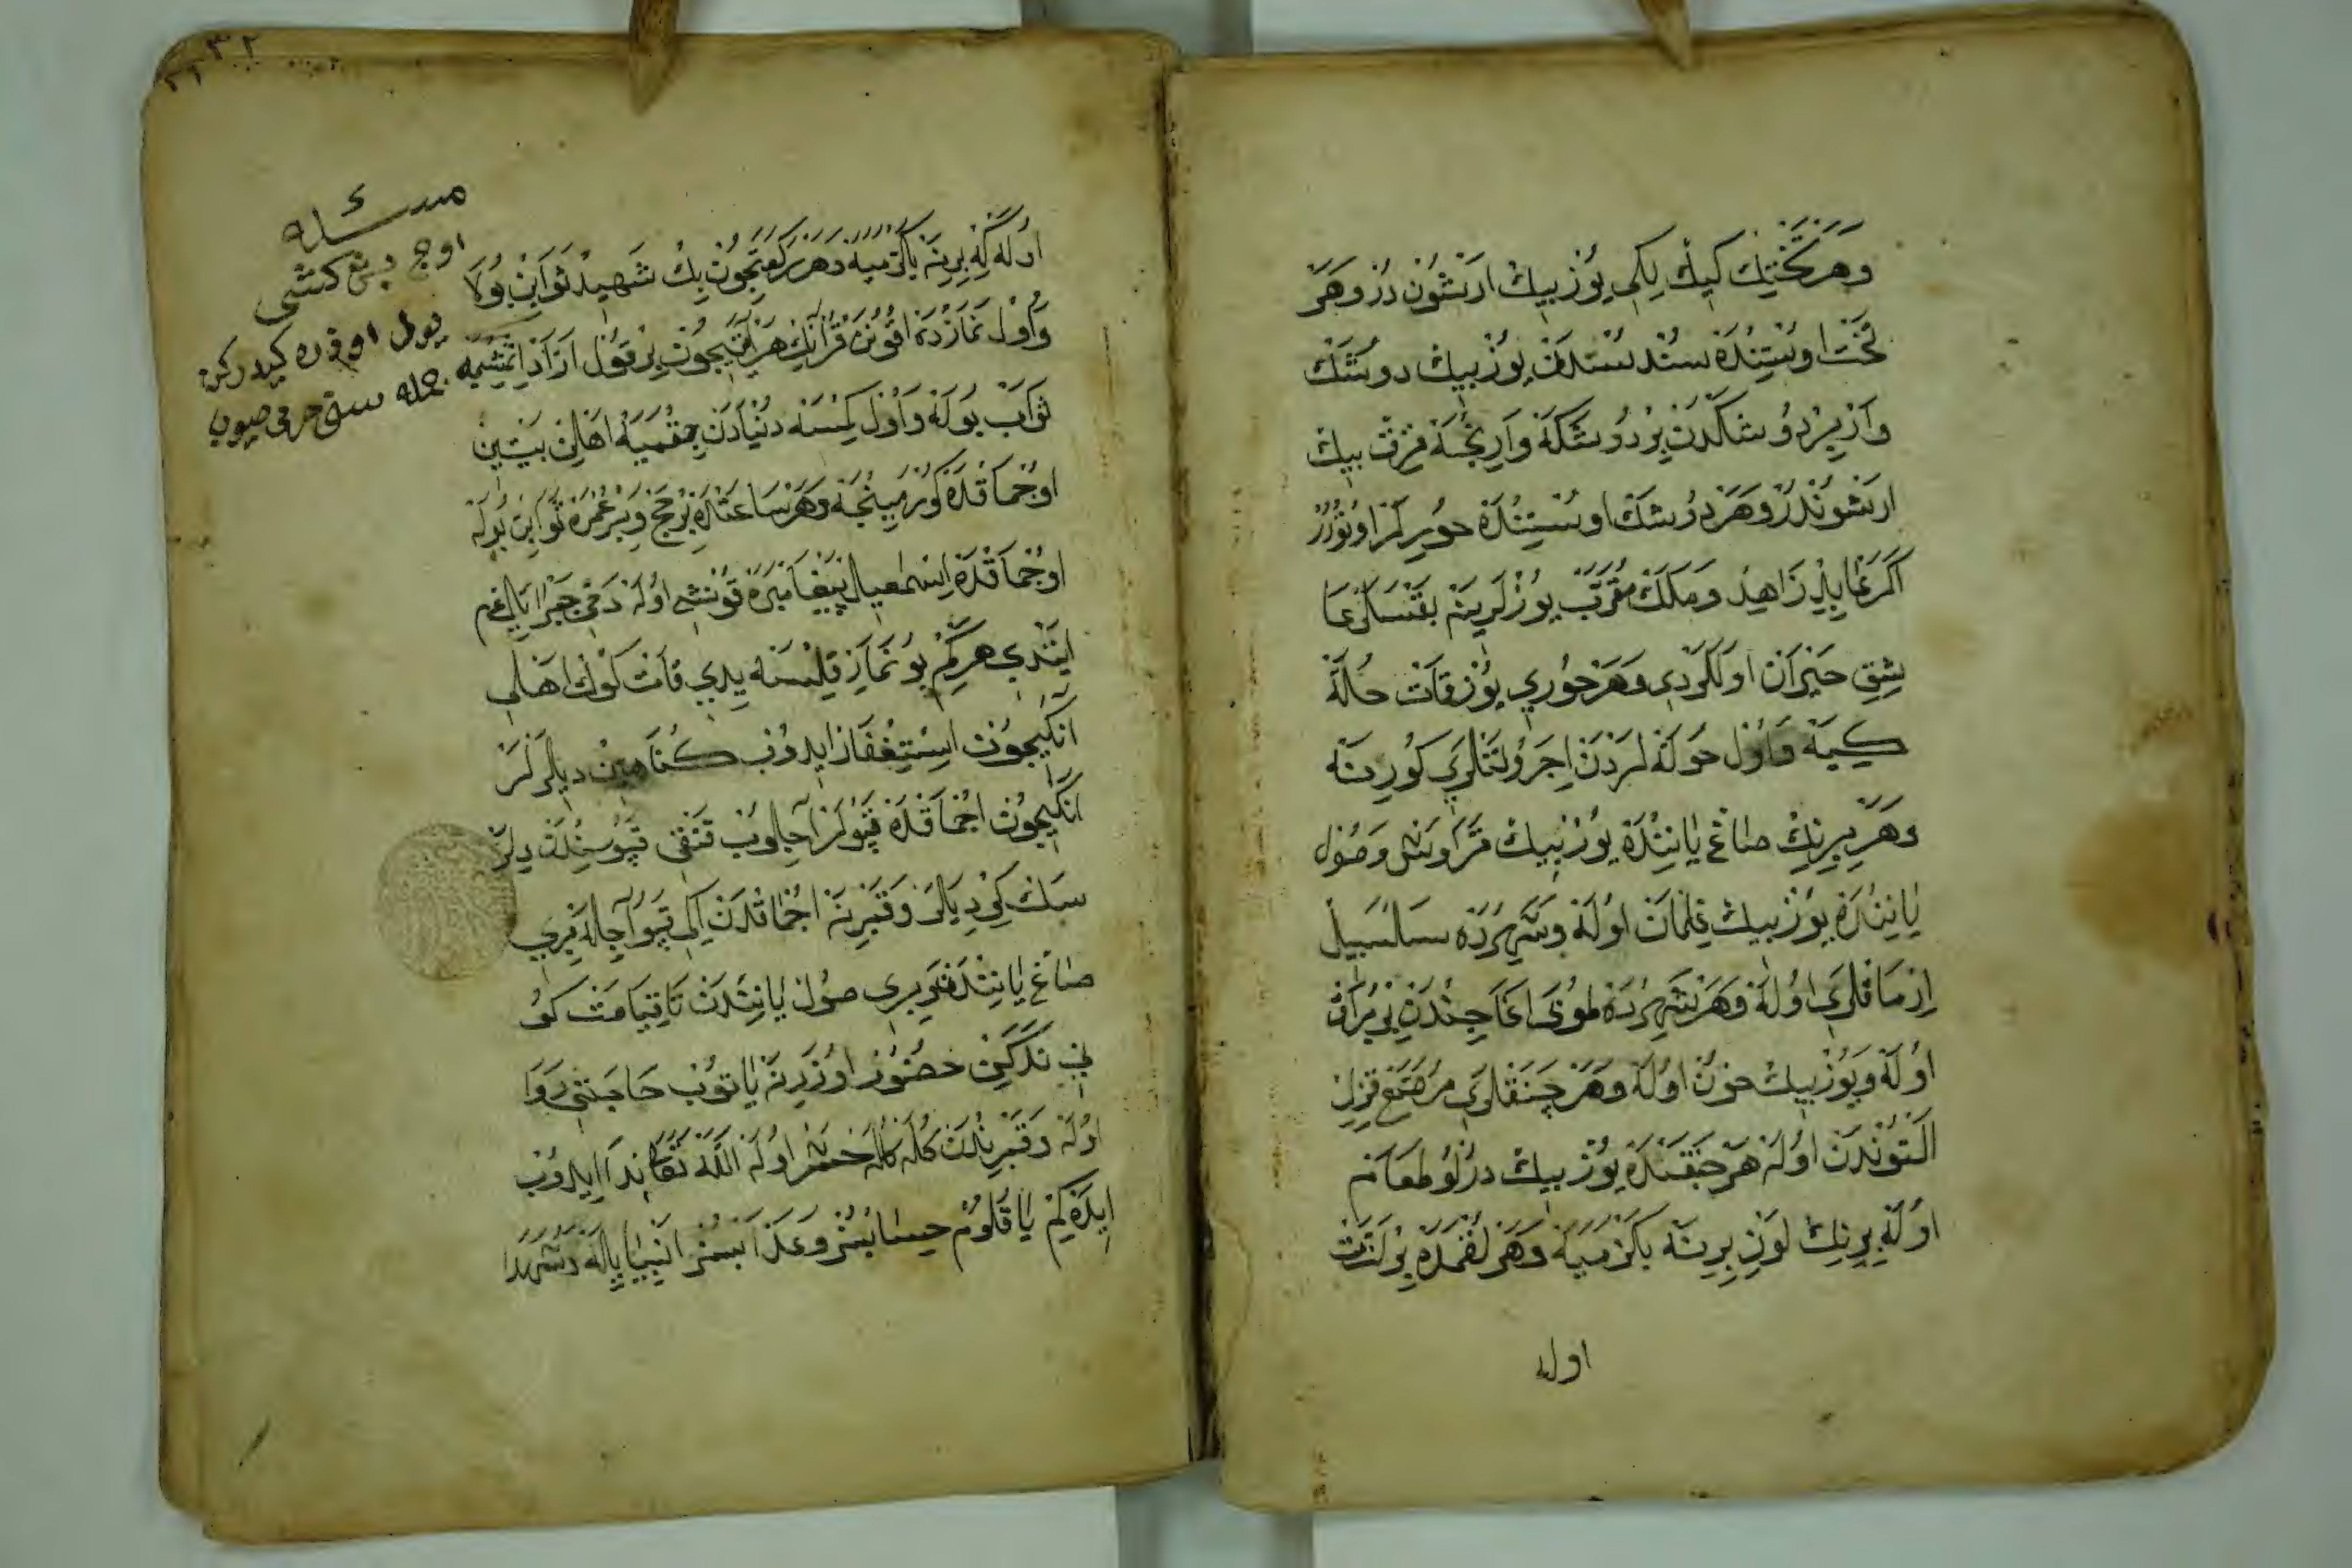 وهر تختيك كيڭلكى يوز بيك ارشون در وهر
تخت اوستنده سندستدن يوز بيك دوشك
وار بر دوشكدن بر دوشكه وارنجه قرق بيك
ارشوندر وهر دوشك اوستنده حوريلر اوتورر
اكر عابد زاهد وملك مقرب يوزلرينه بقسلر عا
شق حيران اولكردى وهر حورى يوز قات حله
كيه واول حوله لردن ايجرو تنلرى كورينه
وهر برينك صاغ ياننده يوز بيك قراوش وصول
ياننده يوز بيك غلمان اوله وشهرده سلسبيل
ارمقلرى اوله وهر شهرده طوبى اغاجندن بر
اوله ويوز بيك خون اوله وهر چنقلرى مرصع قزل
التوندن اوله هر چنقنده يوز بيك درلو طعام
اوله برينك لون برينه بكزميه وهر لقمده بر لذت
اوله
مسئله
اوج بش كشى
يول اوزره كيدركن
اوله كه برينه بكزميه وهر ركعتچون بيك شهيد ثوابن بولا
واول نمازده اقونن قرآنك هر حرفيچون بر قول ازاد ايتمشجه
ثواب بوله واول كمسنه دنيادن چقميه اهلن بيتين
اوجماقده كورمينجه وهر ساعتده بر حج وبر عمره ثوابن بوله
اوجماقده اسمعيل پيغامبره قونشى اوله دخى جبرائيل عم
ايتدى هر كم بو نماز قلسنه يدى قات كوك اهلى
انكيچون استغفار ايدوب كناهين ديلرلر
انكيچون اجماقده قپولر آچلوب قنقى قپوسندن ديلر
سك كر ديلر وقبرينه اجماقدن ايكى قپو آچله برى
صاغ ياننده وبرى صول ياندن تا قيامت كو
ننه دكين حضور اوزرينه ياتوب حاجتى روا
اوله وقبرندن كله كله حشر اوله الله تعالى ندا ايدوب
ايده كم يا قلوم حسابسز وعذابسز انبيا يله وشهدا